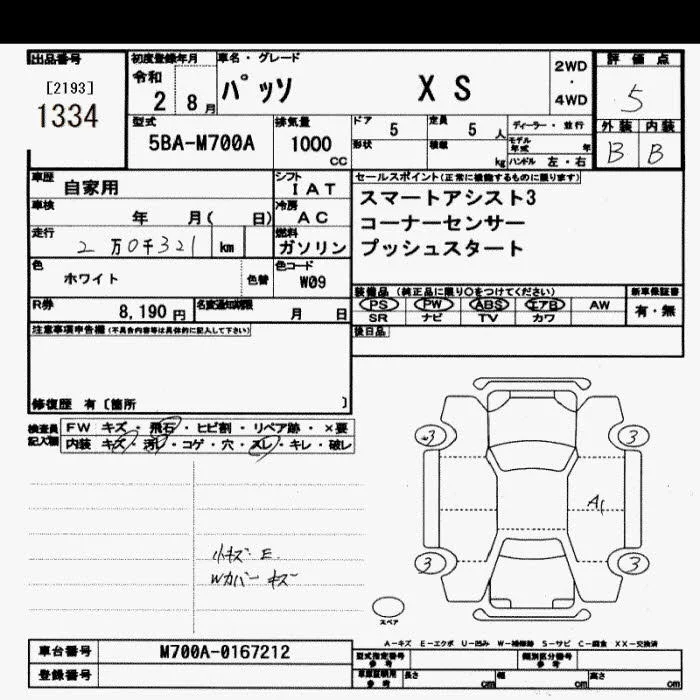 出品番号
[2193]
1334
初度登録年月
令和
2 8月
車名・グレード
パッソ XS
2WD
・
4WD
評価点
5
外装 内装
B B
型式
5BA-M700A
排気量
1000
CC
ドア 5
定員 5人
形状
積載 kg
ディーラー・並行
モデル年式 年
ハンドル 左・右
車歴 自家用
シフト IAT
車検 年 月( 日)
冷房 AC
走行 2万0千321 km
燃料 ガソリン
色 ホワイト 色替
色コード W09
R券 8,190円
名変通知期限 月 日
セールスポイント(正常に機能するものに限ります)
スマートアシスト3
コーナーセンサー
プッシュスタート
装備品 (純正品に限り○をつけてください)
PS PW ABS エアB AW
SR ナビ TV カワ
新車保証書
有・無
後日品
注意事項申告欄(不具合内容等は具体的に記入して下さい)
修復歴 有〔箇所 〕
検査員記入欄
FW キズ・飛石・ヒビ割・リペア跡・×要
内装 キズ・汚レ・コゲ・穴・スレ・キレ・破レ
小キズ E
Wカバー キズ
3 3
A1
3 3
スペア
A-キズ E-エクボ U-凹み W-補修跡 S-サビ C-腐食 XX-交換済
車台番号 M700A-0167212
登録番号
型式指定番号 参考
類別区分番号 参考
車庫証明用 参考
長さ cm 幅 cm 高さ cm